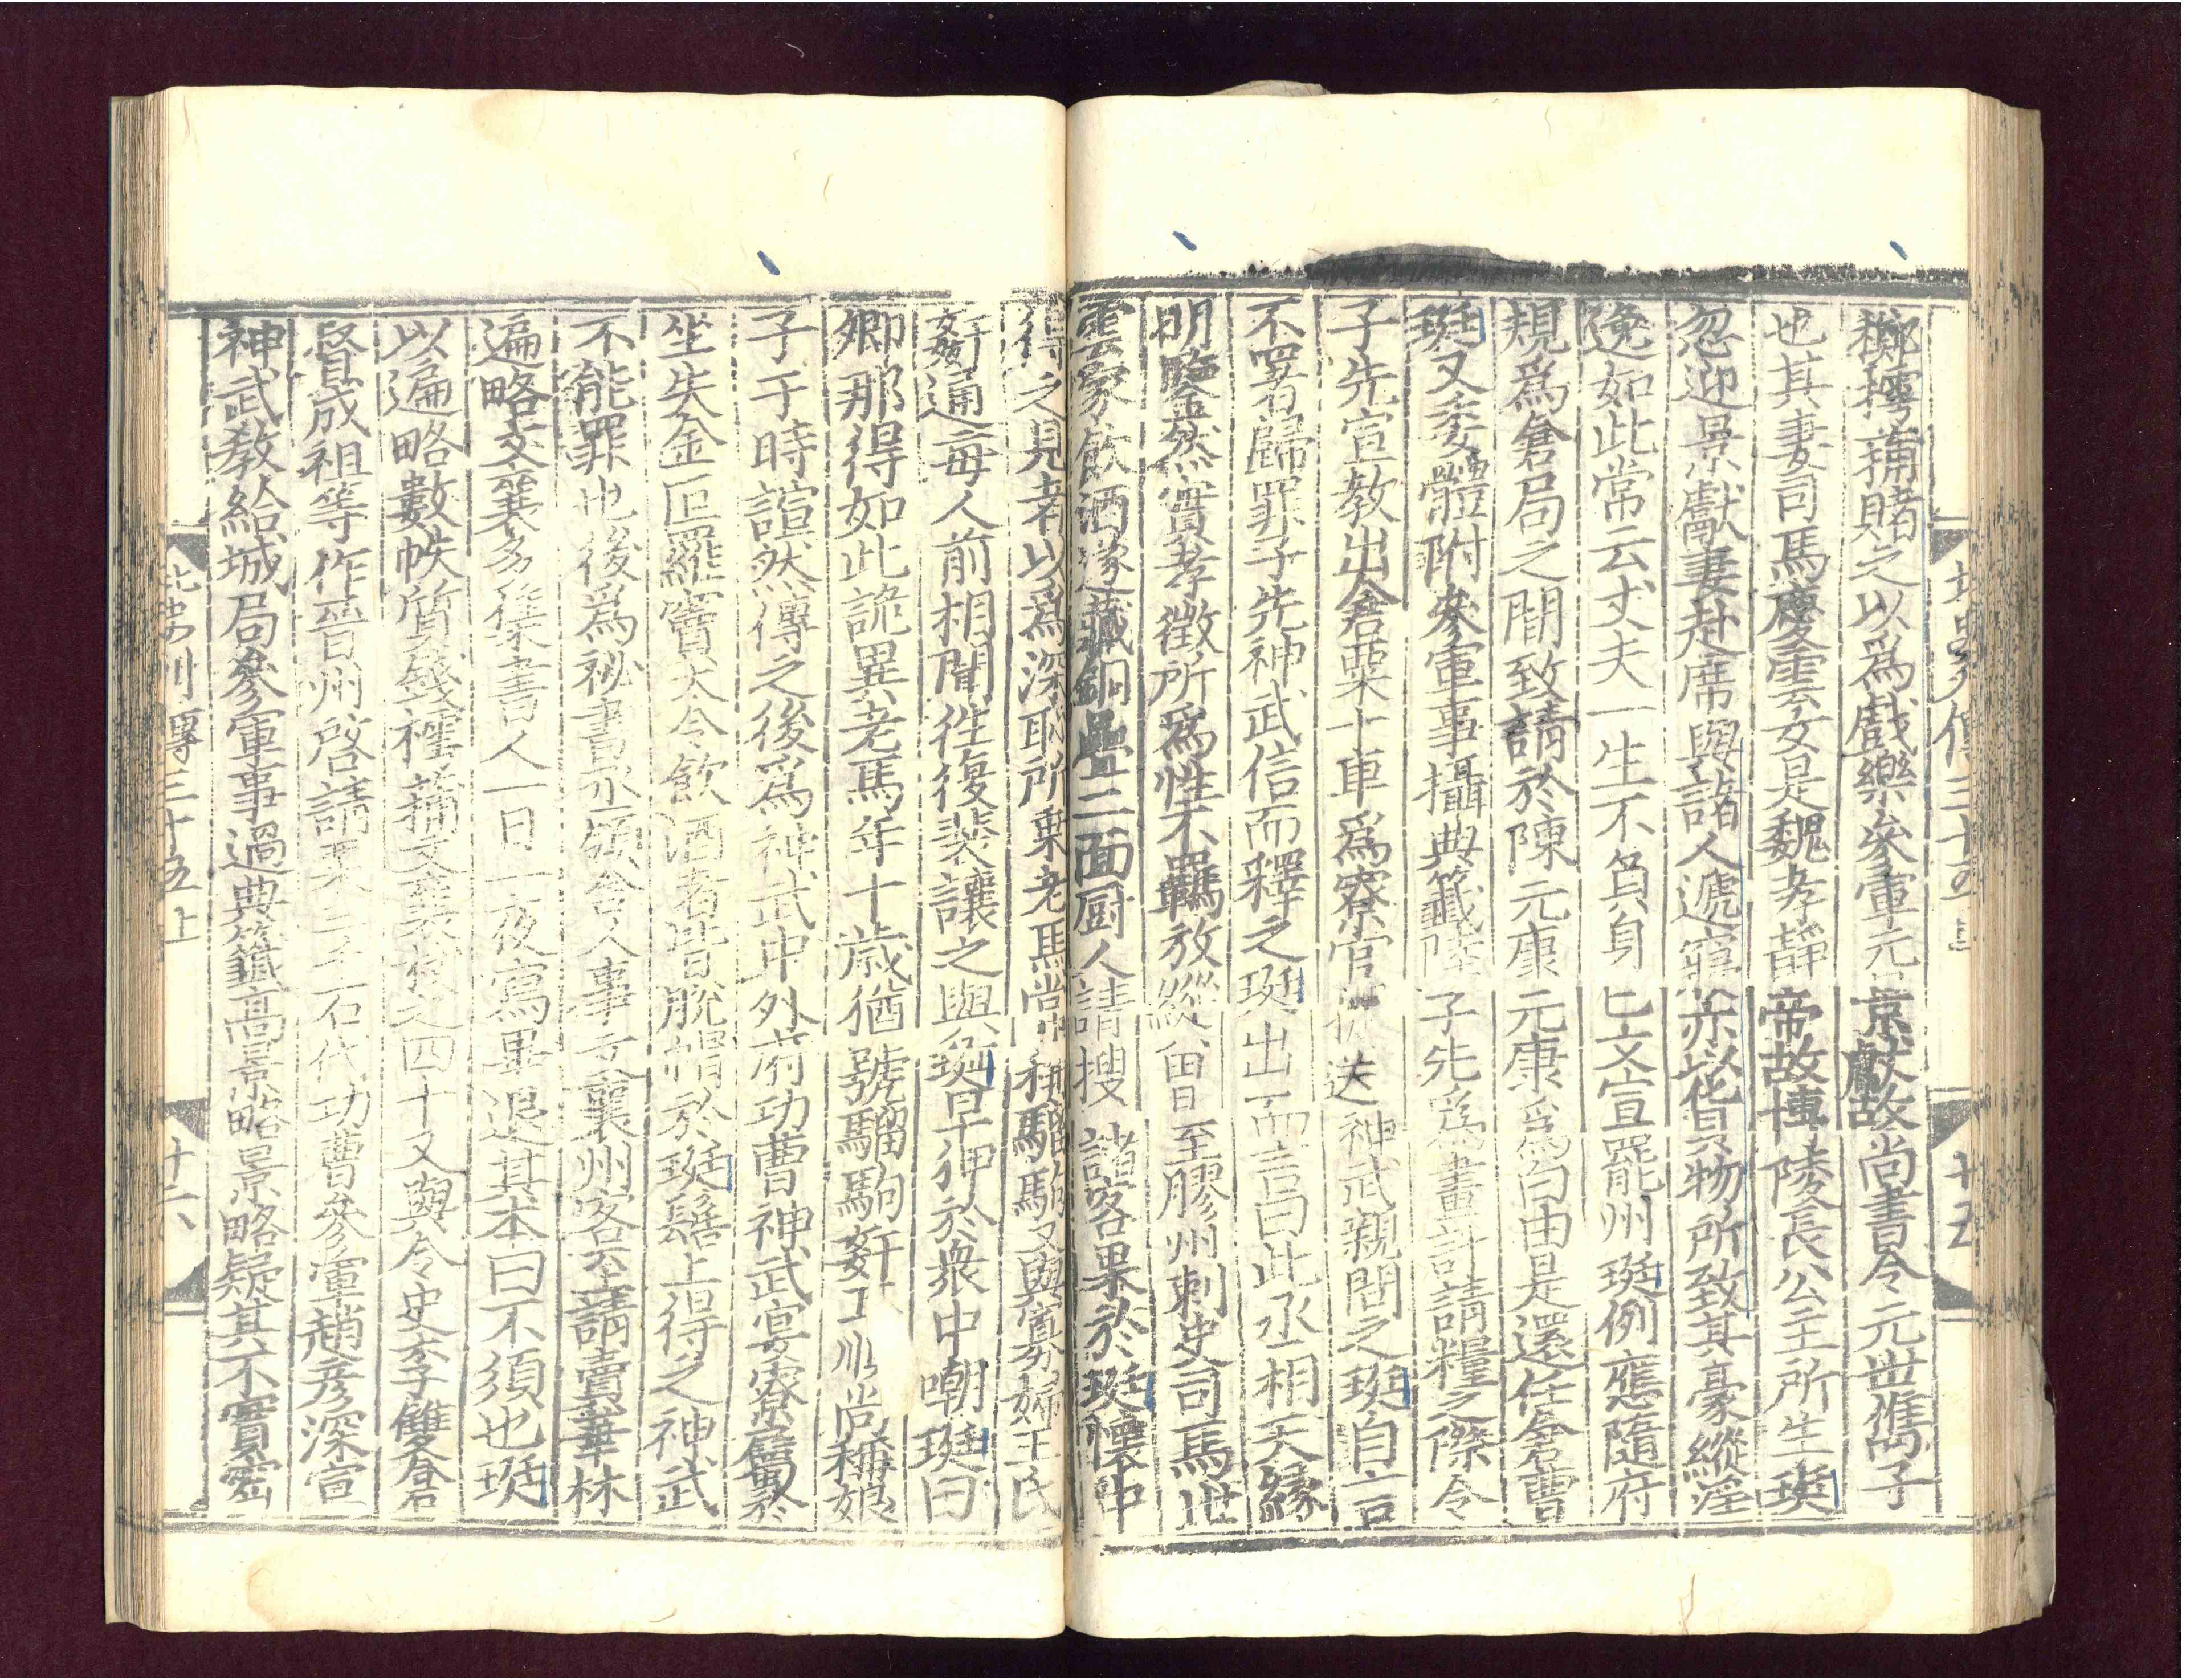 擲樗蒱賭之以爲戲樂參軍元景獻故尚書令元世儁子
也其妻司馬慶雲女是魏孝靜帝故博陵長公主所生珽
忽迎景獻妻赴席與諸人遞寢亦以貨物所致其豪縱淫
逸如此常云丈夫一生不負身已文宣罷州珽例應隨府
規爲倉局之閒致請於陳元康元康爲白由是還任倉曹
珽又委體附參軍事攝典籤陸子先爲畫計請糧之際令
子先宣敎出倉粟十車爲寮官送神武親問之珽自言
不署歸罪子先神武信而釋之珽出而言曰此丞相天緣
明鑒然實孝徵所爲性不羈放縱曾至膠州刺史司馬世
雲家飮酒遂藏銅疊二面厨人請搜諸客果於珽懷中
得之見者以爲深恥所乗老馬常稱騮駒又與寡婦王氏
姦通每人前相聞往復裴讓之與珽早狎於衆中嘲珽曰
卿那得如此詭異老馬年十歲猶號騮駒姧耳順尚稱娘
子于時諠然傳之後爲神武中外府功曹神武宴寮屬於
坐失金叵羅竇太令飮酒者皆脫帽於珽髻上得之神武
不能罪也後爲祕書丞領舍人事文襄州客至請賣華林
遍略文襄多集書人一日一夜寫畢退其本曰不須也珽
以遍略數帙質錢樗蒱文襄杖之四十又與令史李雙倉
督成祖等作晉州啓請粟三千石代功曹參軍趙彥深宣
神武敎給城局參軍事過典籤高景略景略疑其不實密
北史列傳三十五上
十六